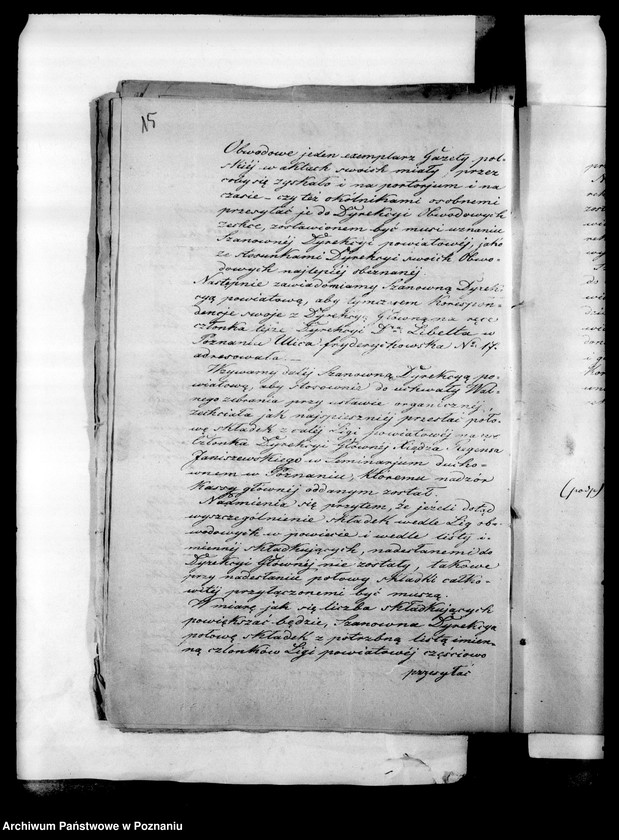 15
Obwodowe jeden exemplarz Gazety pol-
skiéj w aktach swoich miały, przez
coby się zyskało i na portorjum i na
czasie – czy też okólnikami osobnemi
przesyłać je do Dyrekcyi Obwodowych
zechce, zostawionem być musi uznaniu
Szanownéj Dyrekcyi powiatowéj, jako
ze stosunkami Dyrekcyi swoich Obwo-
dowych najlepiéj obeznanéj.
Następnie zawiadomiamy Szanowną Dyrek-
cyą powiatową, aby tymczasem Korespon-
dencje swoje z Dyrekcyą Główną na ręce
członka tejże Dyrekcyi Dra Libelta w
Poznaniu Ulica fryderykowska No 17.
adresowała. —
Wzywamy daléj Szanowną Dyrekcyą po-
wiatową, aby stosownie do uchwały Wal-
nego zebrania przy ustawie organicznéj,
zechciała jak najspieszniéj przesłać poło-
wę składek z całéj Ligi powiatowéj na ręce
Członka Dyrekcyi Głównéj Xiędza Eugenjusza
Janiszewskiego w Seminarjum ducho-
wnem w Poznaniu, któremu nadzór
Kassy głównéj oddanym został.
Nadmienia się przytem, że jeżeli dotąd
wyszczególnienie składek wedle Lig ob-
wodowych w powiecie i wedle listy i-
miennéj składkujących, nadesłanemi do
Dyrekcyi Głównéj nie zostały, takowe
przy nadesłaniu połowy składki całko-
witéj przyłączonemi być muszą.
W miarę jak się liczba składkujących
powiększać będzie, Szanowna Dyrekcya
połowę składek z potrzebną listą imien-
ną członków Ligi powiatowéj częściowo
przesyłać
(podp)
Archiwum Państwowe w Poznaniu